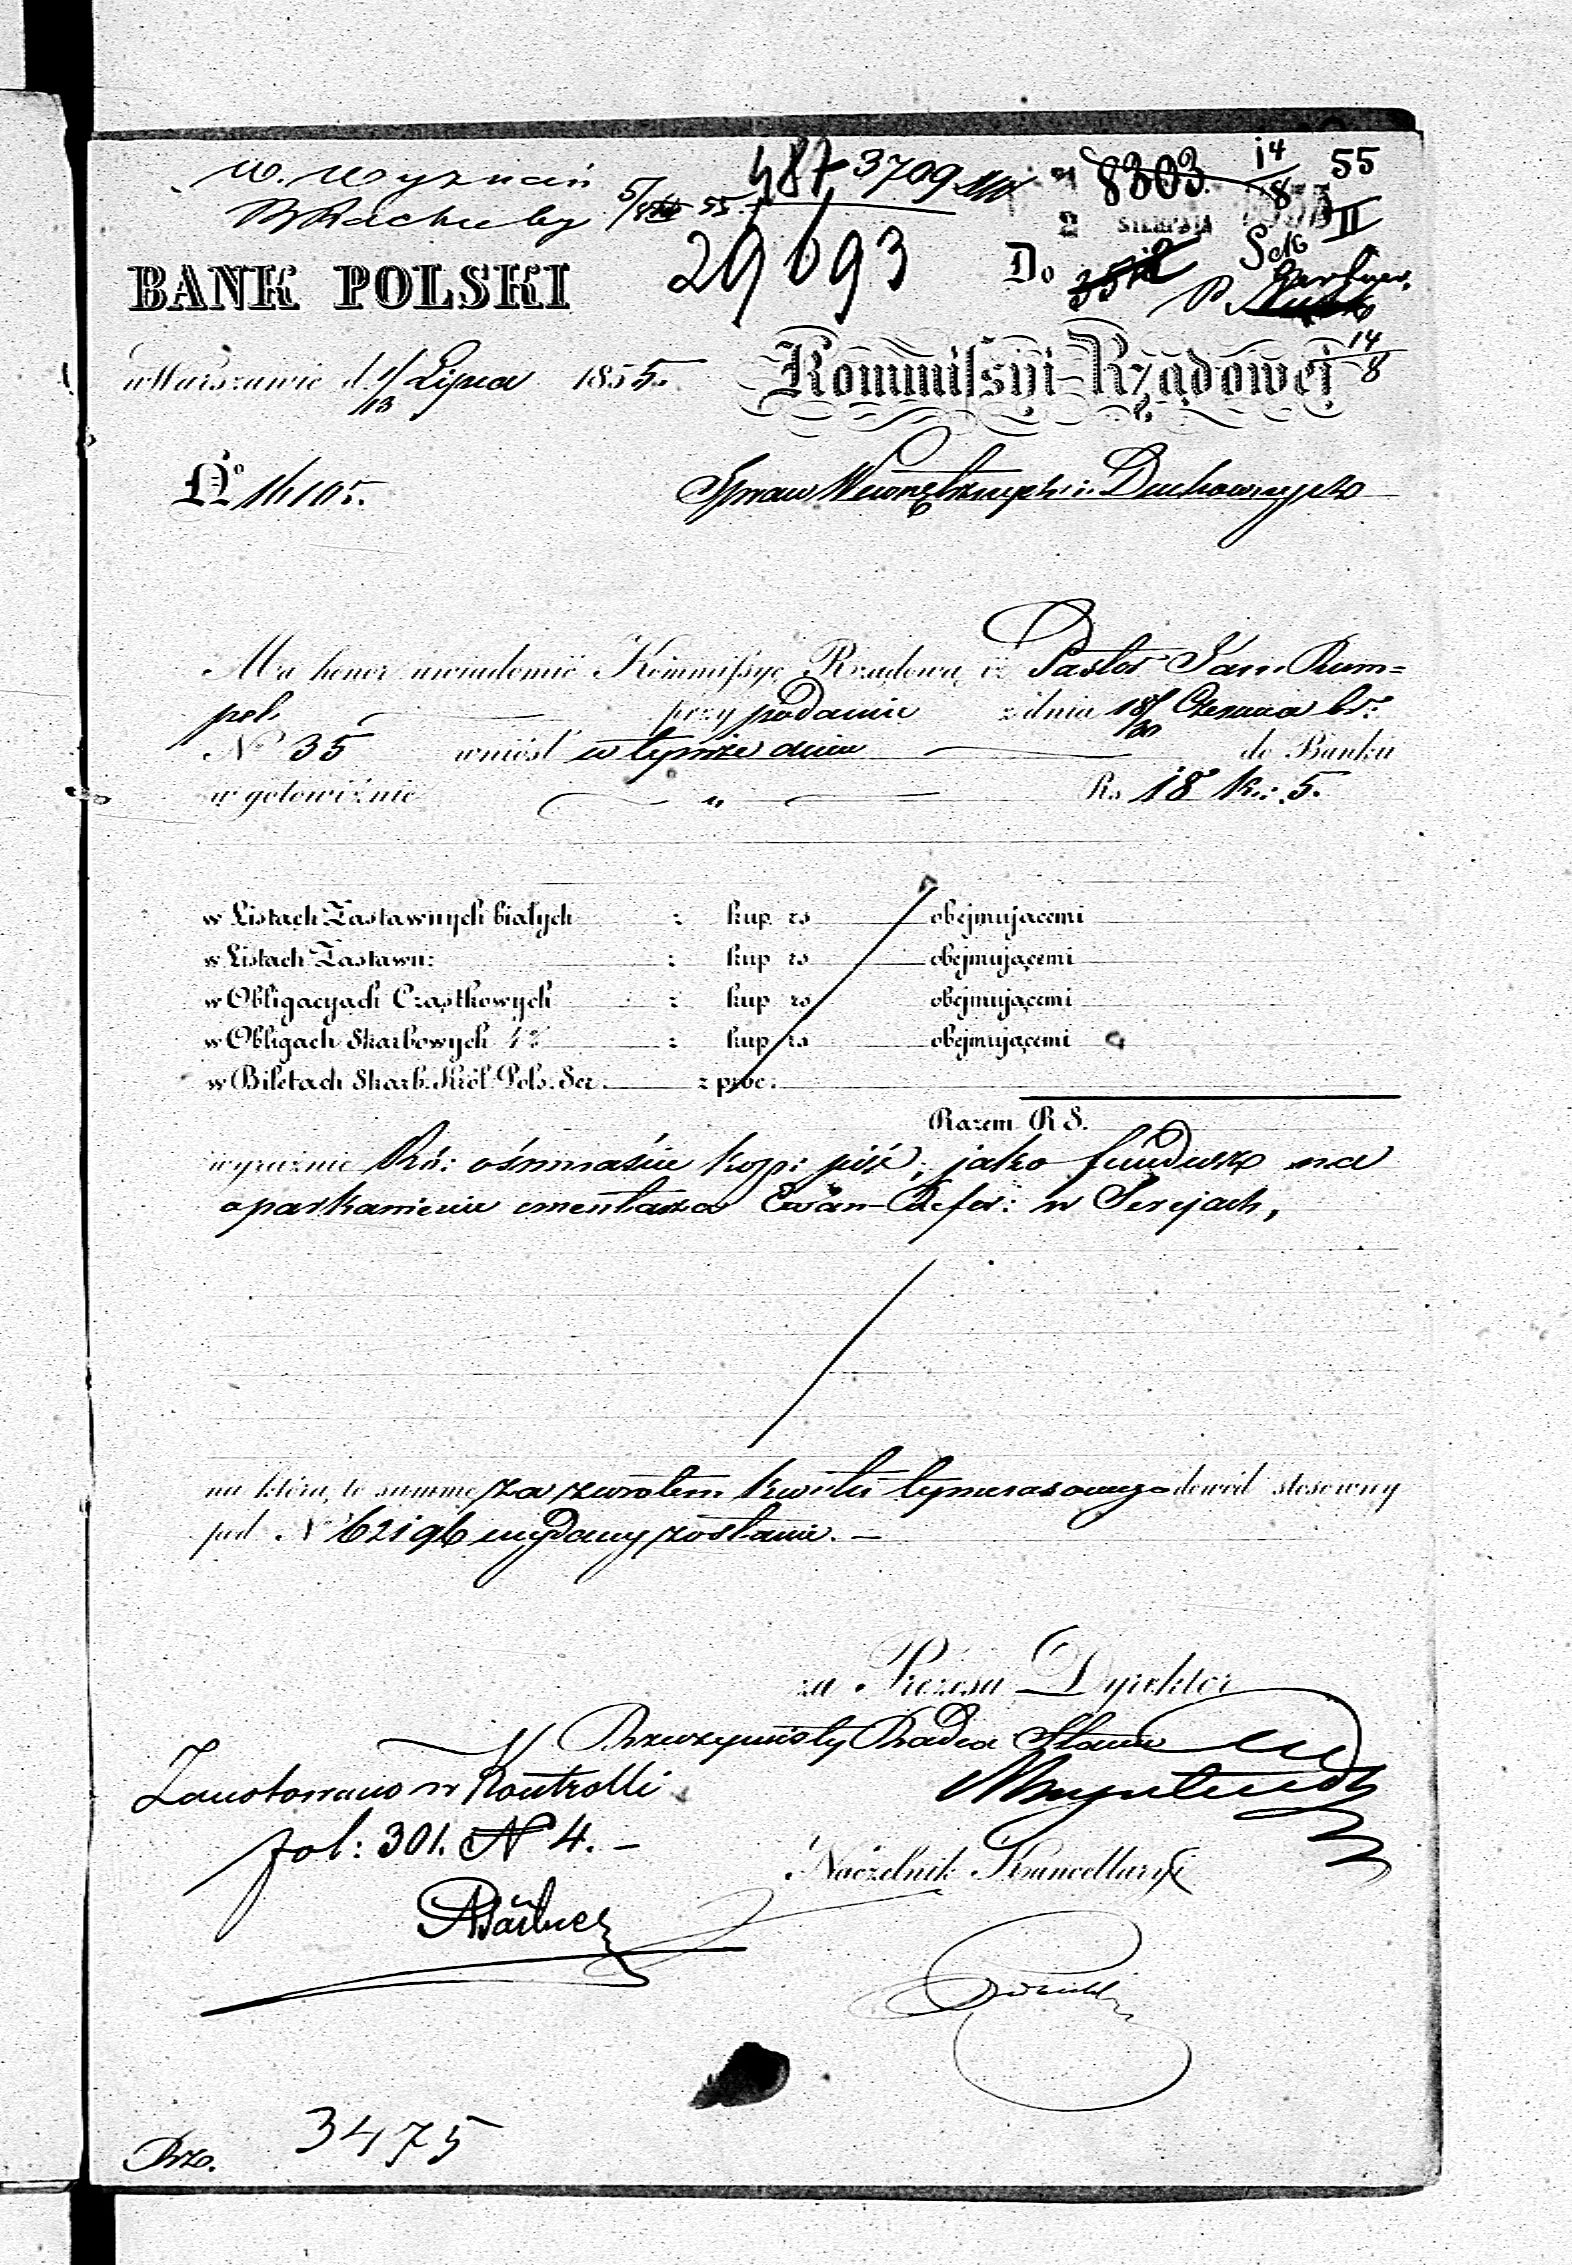 W. Wyznań 487 3709 8303. 14/8 55
W Rachuby 5/ 55. 2 SIERPNIA II
BANK POLSKI 29693 Do
w Warszawie d. 1/13 Lipca 1855. Kommissyi Rządowej 14/8
No 16105. Spraw Wewnętrznych i Duchownych
Ma honor uwiadomić Kommissyę Rządową iż Pastor Jan Rum=
pel przy podaniu z dnia 18/30 Czerwca br:
No 35 wniósł w tymże dniu do Banku
w gotowiźnie " Rs 18 k: 5.
w Listach Zastawnych białych z kup. rs obejmującemi
w Listach Zastawn: z kup rs obejmującemi
w Obligacyach Cząstkowych z kup rs obejmującemi
w Obligach Skarbowych 4% z kup rs obejmującemi
w Biletach Skarb. Król. Pols. Ser. z proc:
Razem R S.
wyraźnie Rs: ośmnaście kop: pięć, jako fundusz na
oparkanienie cmentarza Ewan-Refor: w Serejach,
na którą to summę za zwrotem kwitu tymczasowego dowód stosowny
pod No 62196 wydany zostanie. —
za Prezesa Dyrektor
Rzeczywisty Radca Stanu
Zanotowano w Kontrolli
fol: 301. N 4. —
Naczelnik Kancellaryi
3475
Brz.